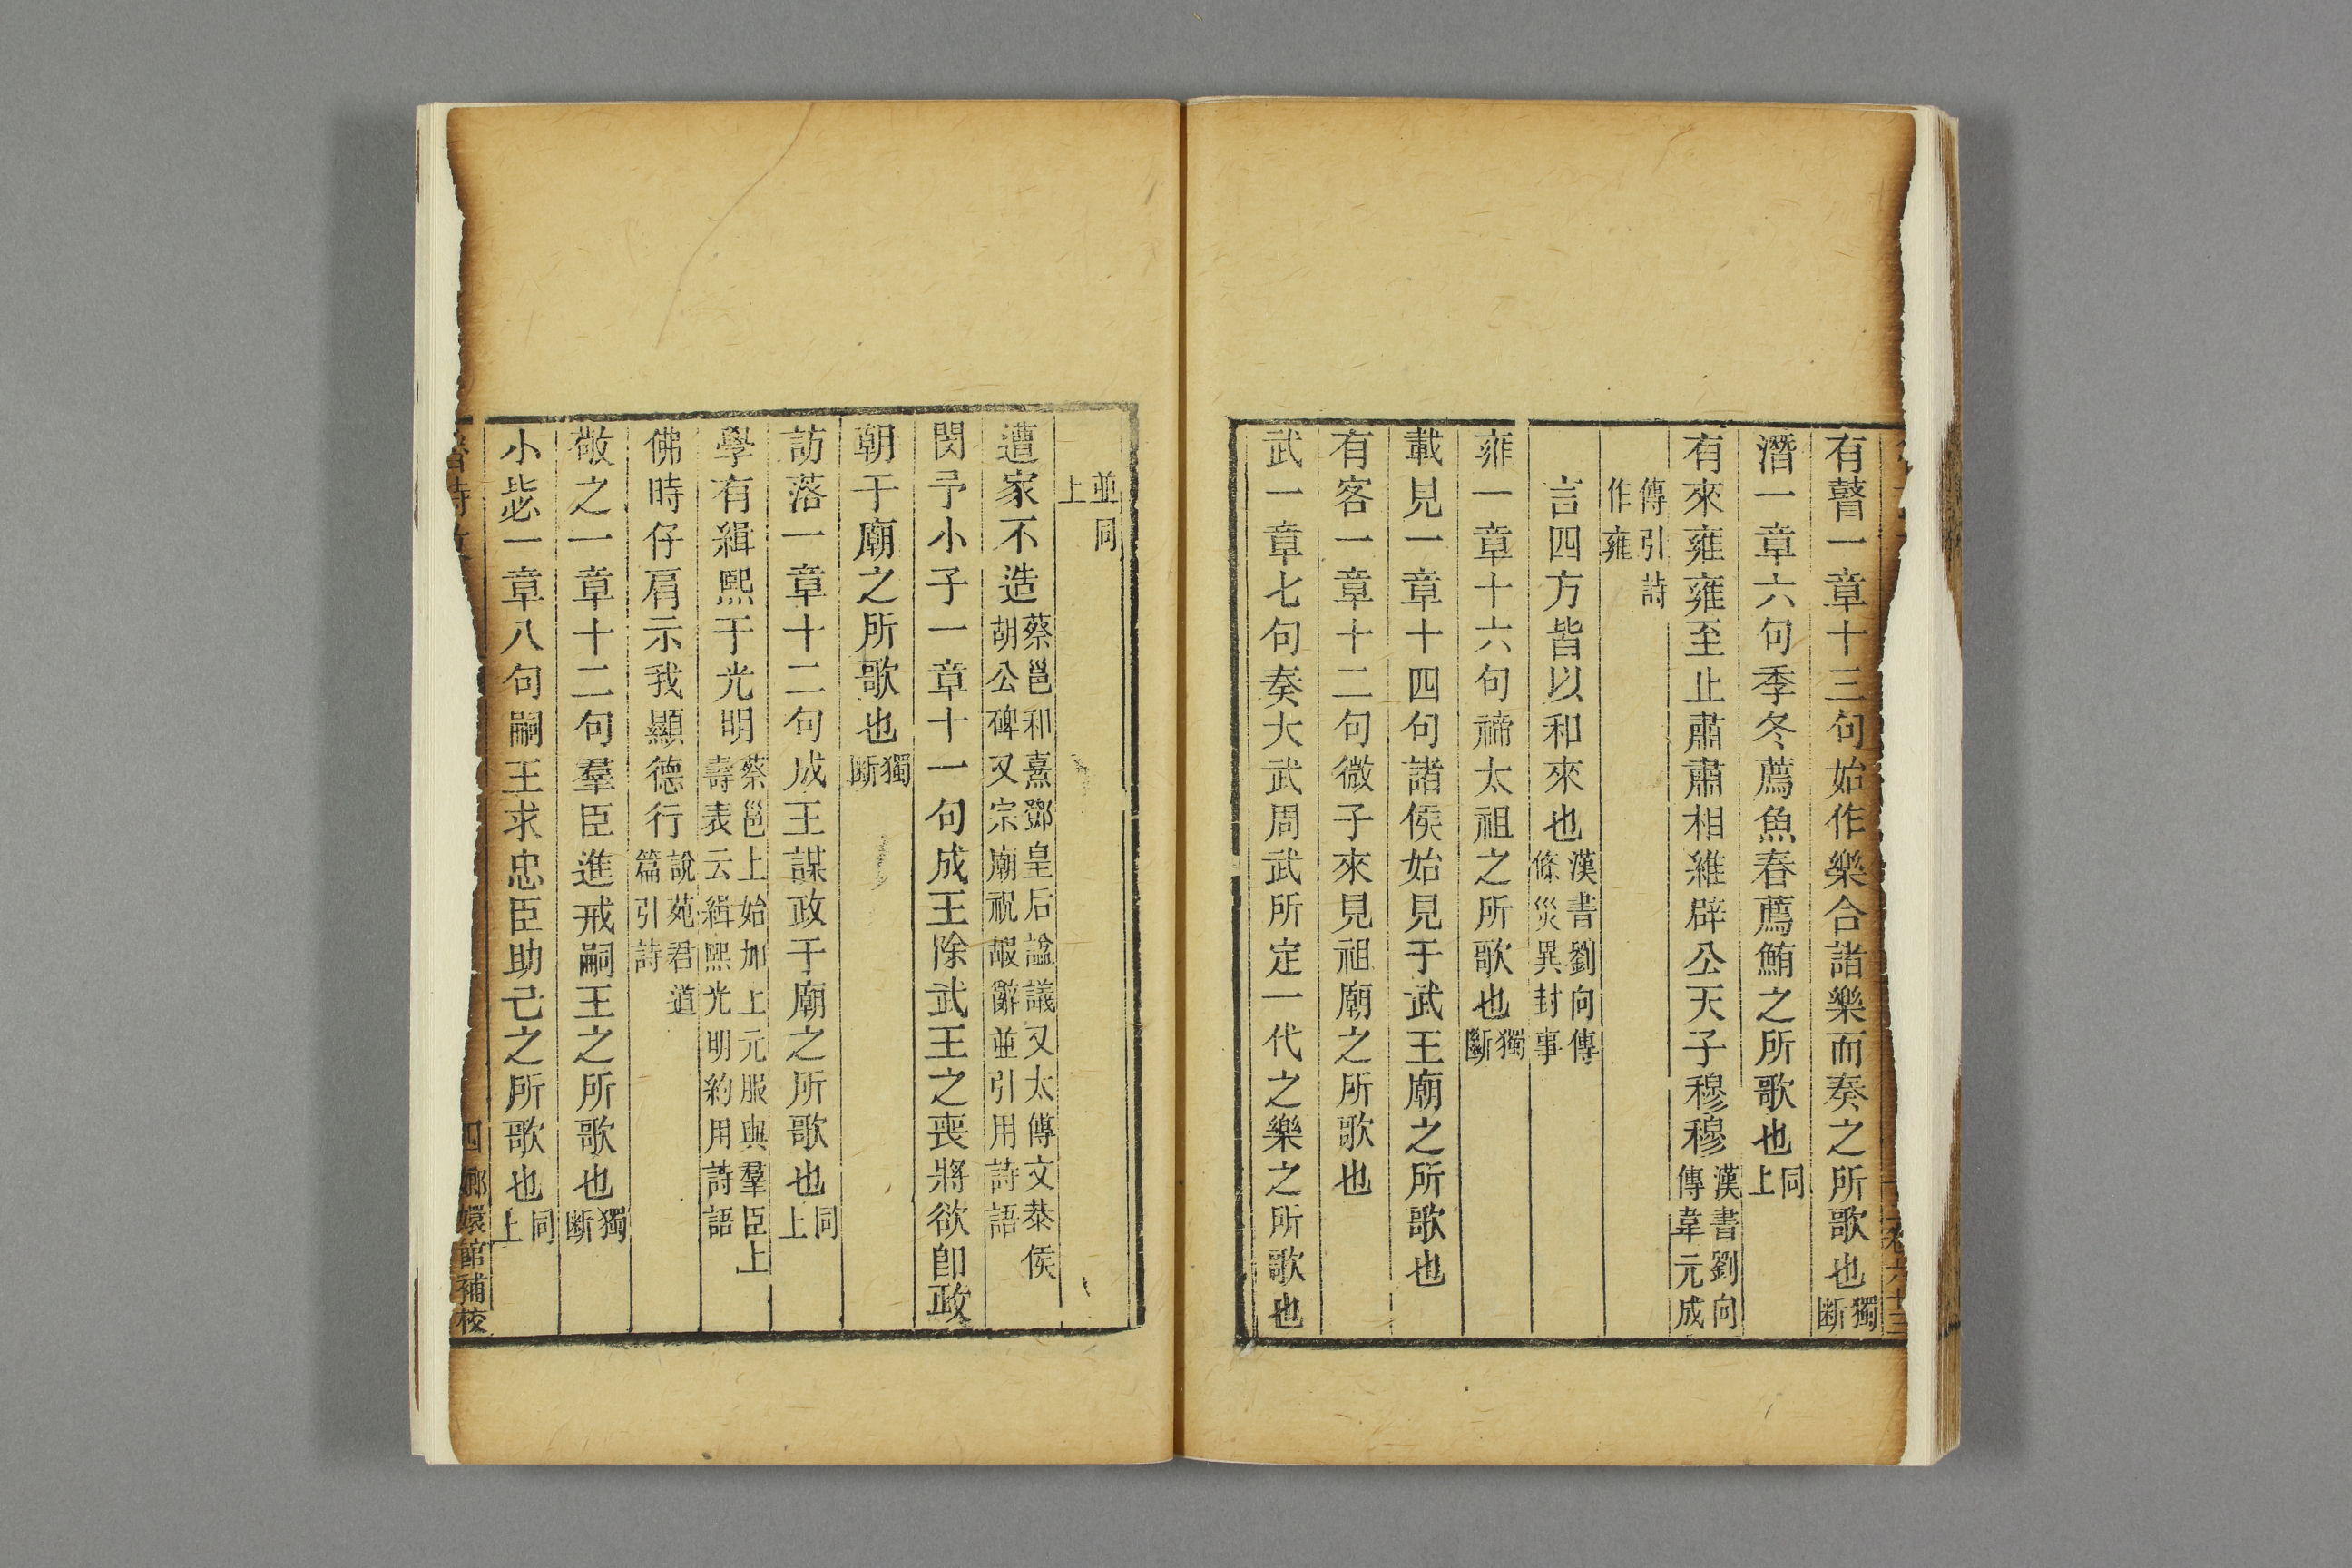 有瞽一章十三句始作樂合諸樂而奏之所歌也獨斷
潛一章六句季冬薦魚春薦鮪之所歌也同上
有來雍雍至止肅肅相維辟公天子穆穆漢書劉向傳韋元成
傳引詩作雍
言四方皆以和來也漢書劉向傳條災異封事
雍一章十六句禘太祖之所歌也獨斷
載見一章十四句諸侯始見于武王廟之所歌也
有客一章十二句微子來見祖廟之所歌也
武一章七句奏大武周武所定一代之樂之所歌也
並同上
遭家不造蔡邕和熹鄧皇后謚議又太傅文恭侯胡公碑又宗廟祝嘏辭並引用詩語
閔予小子一章十一句成王除武王之喪將欲卽政
朝于廟之所歌也獨斷
訪落一章十二句成王謀政于廟之所歌也同上
學有緝熙于光明蔡邕上始加上元服與羣臣上壽表云緝熙光明約用詩語
佛時仔肩示我顯德行說苑君道篇引詩
敬之一章十二句羣臣進戒嗣王之所歌也獨斷
小毖一章八句嗣王求忠臣助己之所歌也同上
四 嫏嬛館補校